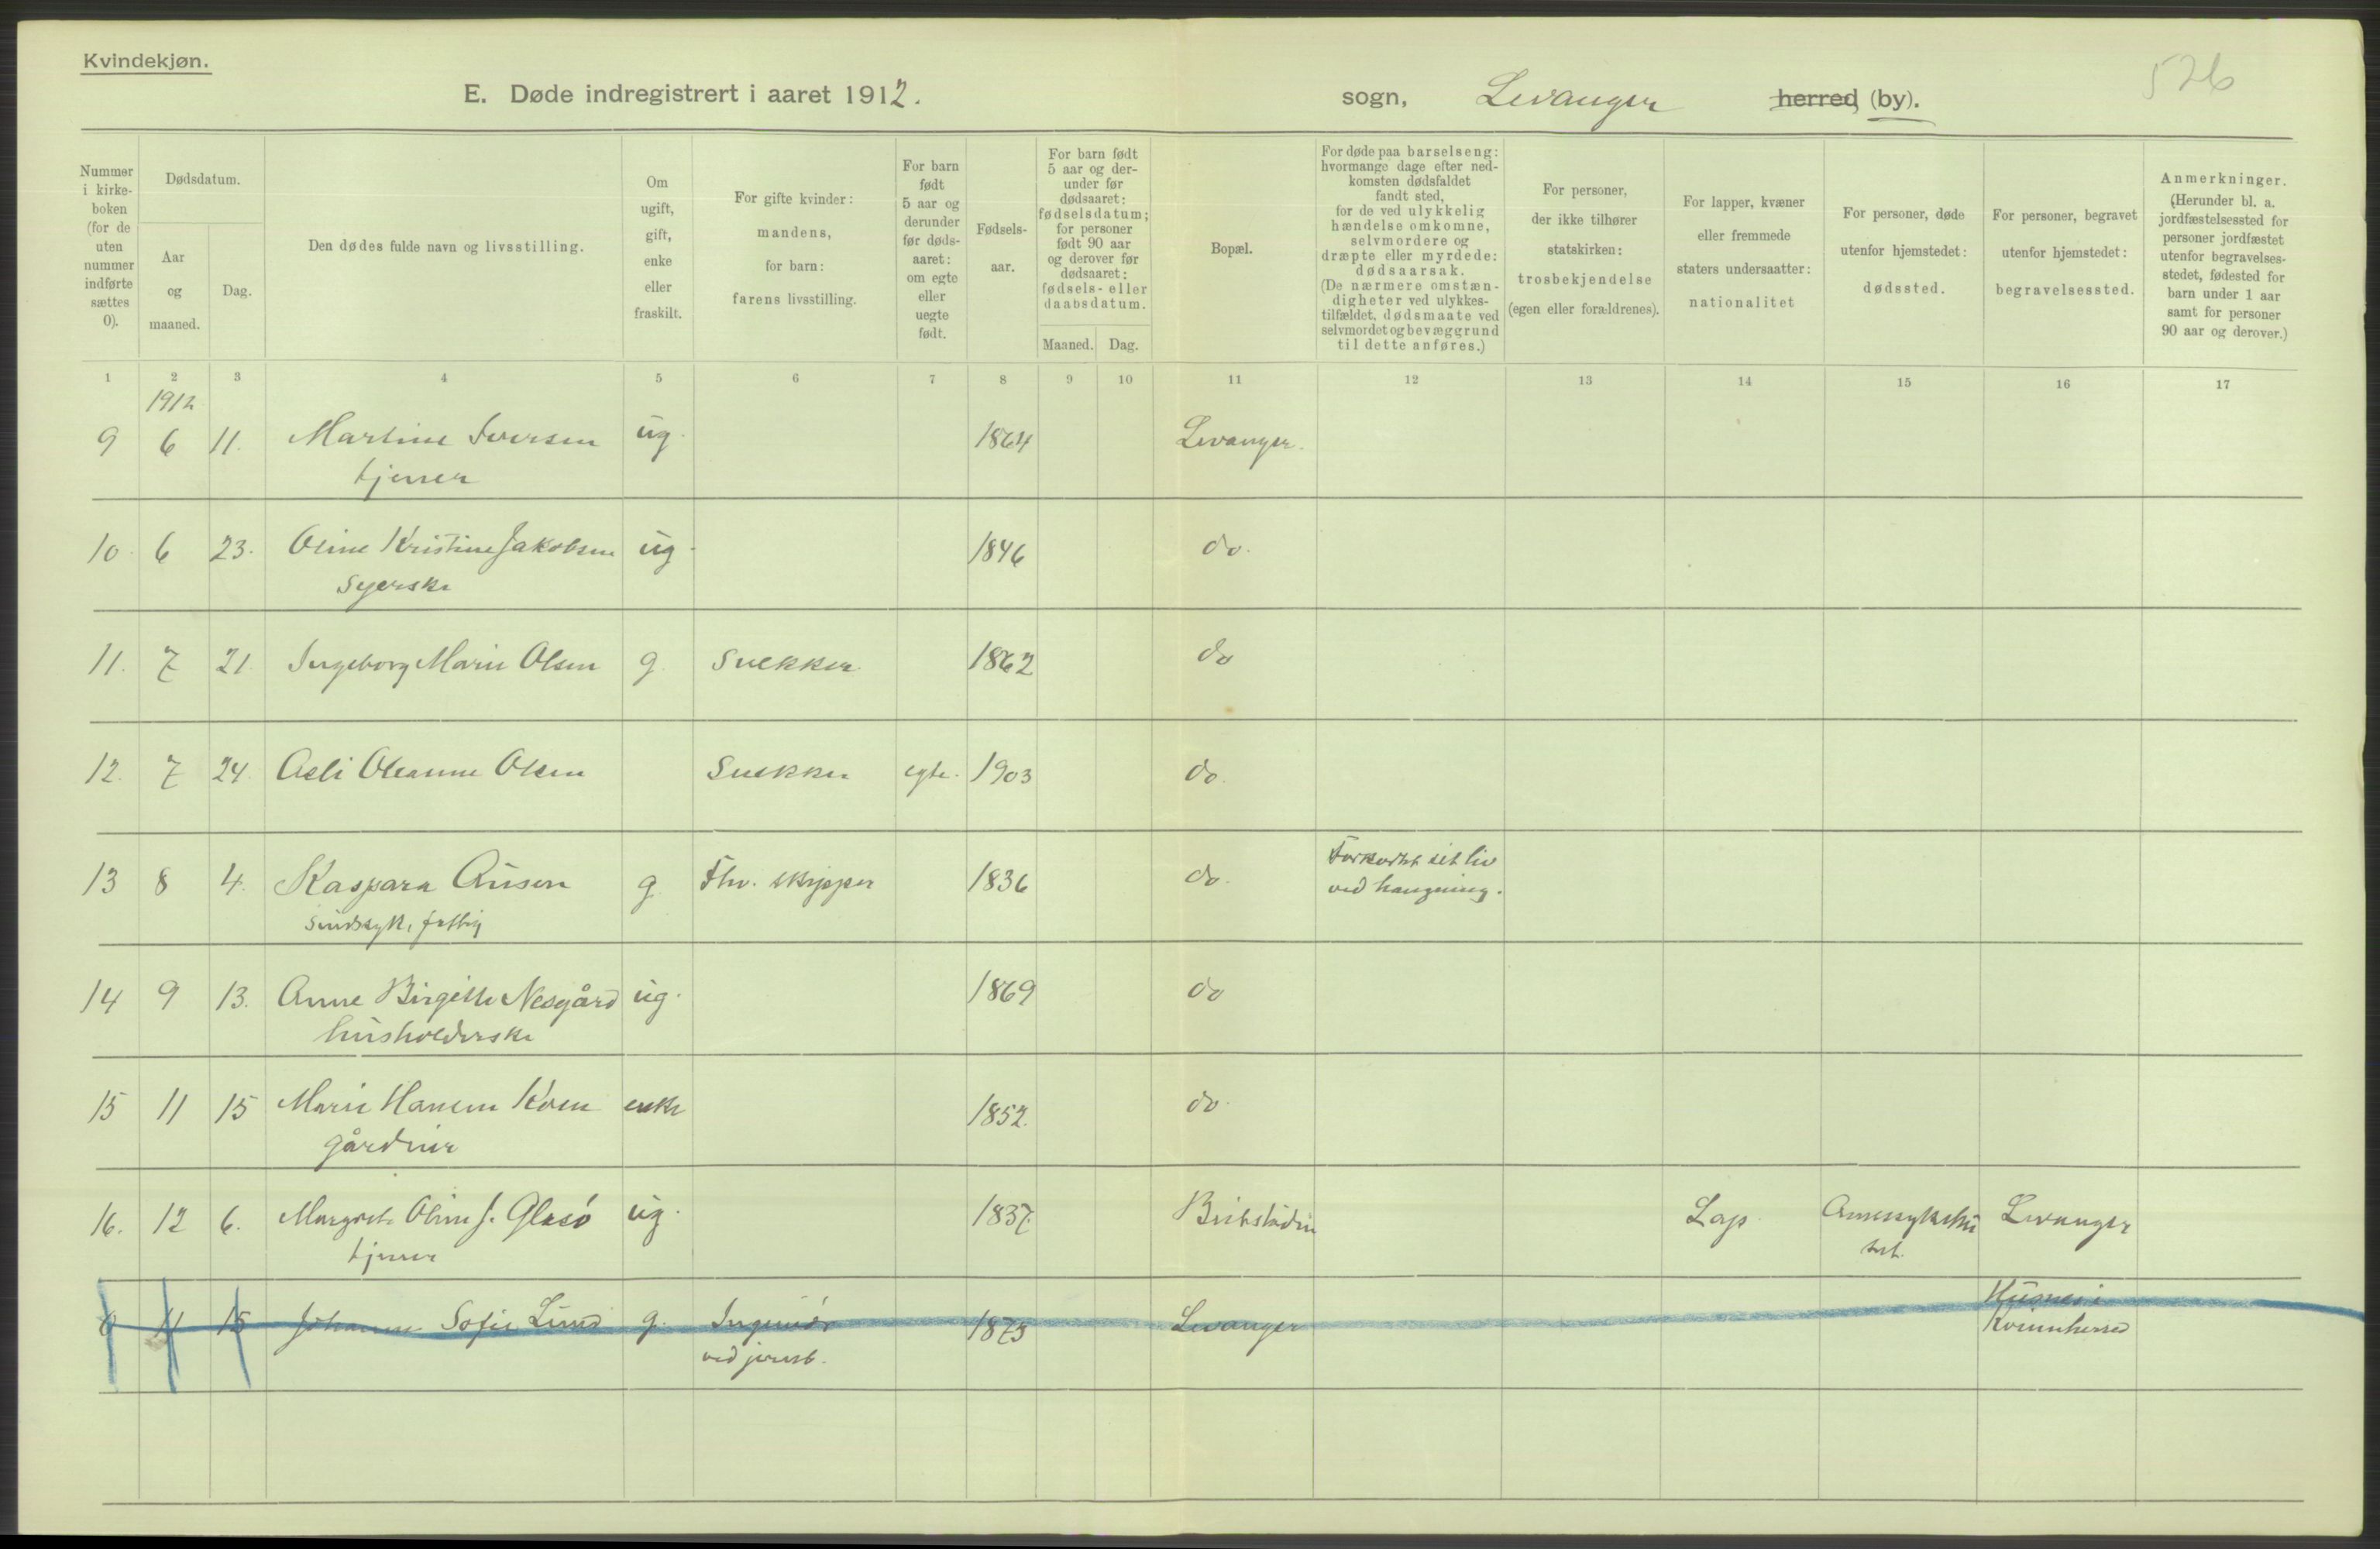 Kvindekjøn.
E. Døde indregistrert i aaret 1912.
sogn, Levanger herred (by).
526
Nummer i kirkeboken (for de uten nummer indførte sættes 0).
Dødsdatum.
Aar og maaned.
Dag.
Den dødes fulde navn og livsstilling.
Om ugift, gift, enke eller fraskilt.
For gifte kvinder: mandens, for barn: farens livsstilling.
For barn født 5 aar og derunder før dødsaaret: om egte eller uegte født.
Fødselsaar.
For barn født 5 aar og derunder før dødsaaret: fødselsdatum; for personer født 90 aar og derover før dødsaaret: fødsels- eller daabsdatum.
Maaned. Dag.
Bopæl.
For døde paa barselseng: hvormange dage efter nedkomsten dødsfaldet fandt sted, for de ved ulykkelig hændelse omkomne, selvmordere og dræpte eller myrdede: dødsaarsak. (De nærmere omstændigheter ved ulykkestilfældet, dødsmaate ved selvmordet og bevæggrund til dette anføres.)
For personer, der ikke tilhører statskirken: trosbekjendelse (egen eller forældrenes).
For lapper, kvæner eller fremmede staters undersaatter: nationalitet
For personer, døde utenfor hjemstedet: dødssted.
For personer, begravet utenfor hjemstedet: begravelsessted.
Anmerkninger. (Herunder bl. a. jordfæstelsessted for personer jordfæstet utenfor begravelsesstedet, fødested for barn under 1 aar samt for personer 90 aar og derover.)
1 2 3 4 5 6 7 8 9 10 11 12 13 14 15 16 17
1912
9 6 11. Martine Iversen ug. 1864 Levanger.
tjener
10. 6 23. Oline Kristine Jakobsen ug. 1846 do.
syerske
11. 7 21. Ingeborg Marie Olsen g. snekker 1862 do
12. 7 24. Oleanne Olsen snekker egte. 1903 do.
13 8 4. Kaspara g. Fhv. skipper 1836 do. Forkortet sit liv
sindssyk, fattig ved hængning.
14 9 13. Anne Birgitte Nesgård ug. 1869 do
husholderske
15 11 15 Marie Hansen enke 1852. do.
16. 12 6. Margrete Oline J. Glesø ug. 1837. Lap. Levanger
tjener
0 11 15 Johanne Sofie Lund g. Ingeniør 1873 Levanger Husnes i
ved jernb. Kvinnherred